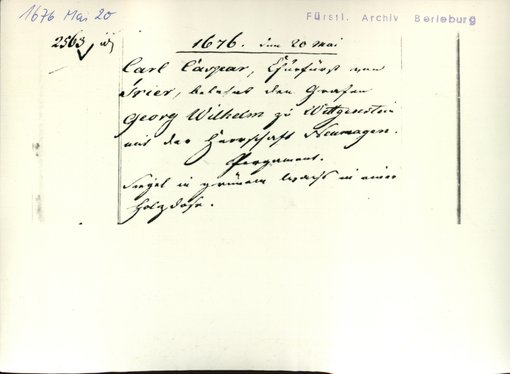 1676 Mai 20
Fürstl. Archiv Berleburg
2563
1676. den 20 Mai
Carl Caspar, Churfürst von
Trier, belehnt den Grafen
Georg Wilhelm zu Wittgenstein
mit der Herrschaft Neumagen.
Pergament.
Siegel in grünem Wachs in einer
Holzdose.